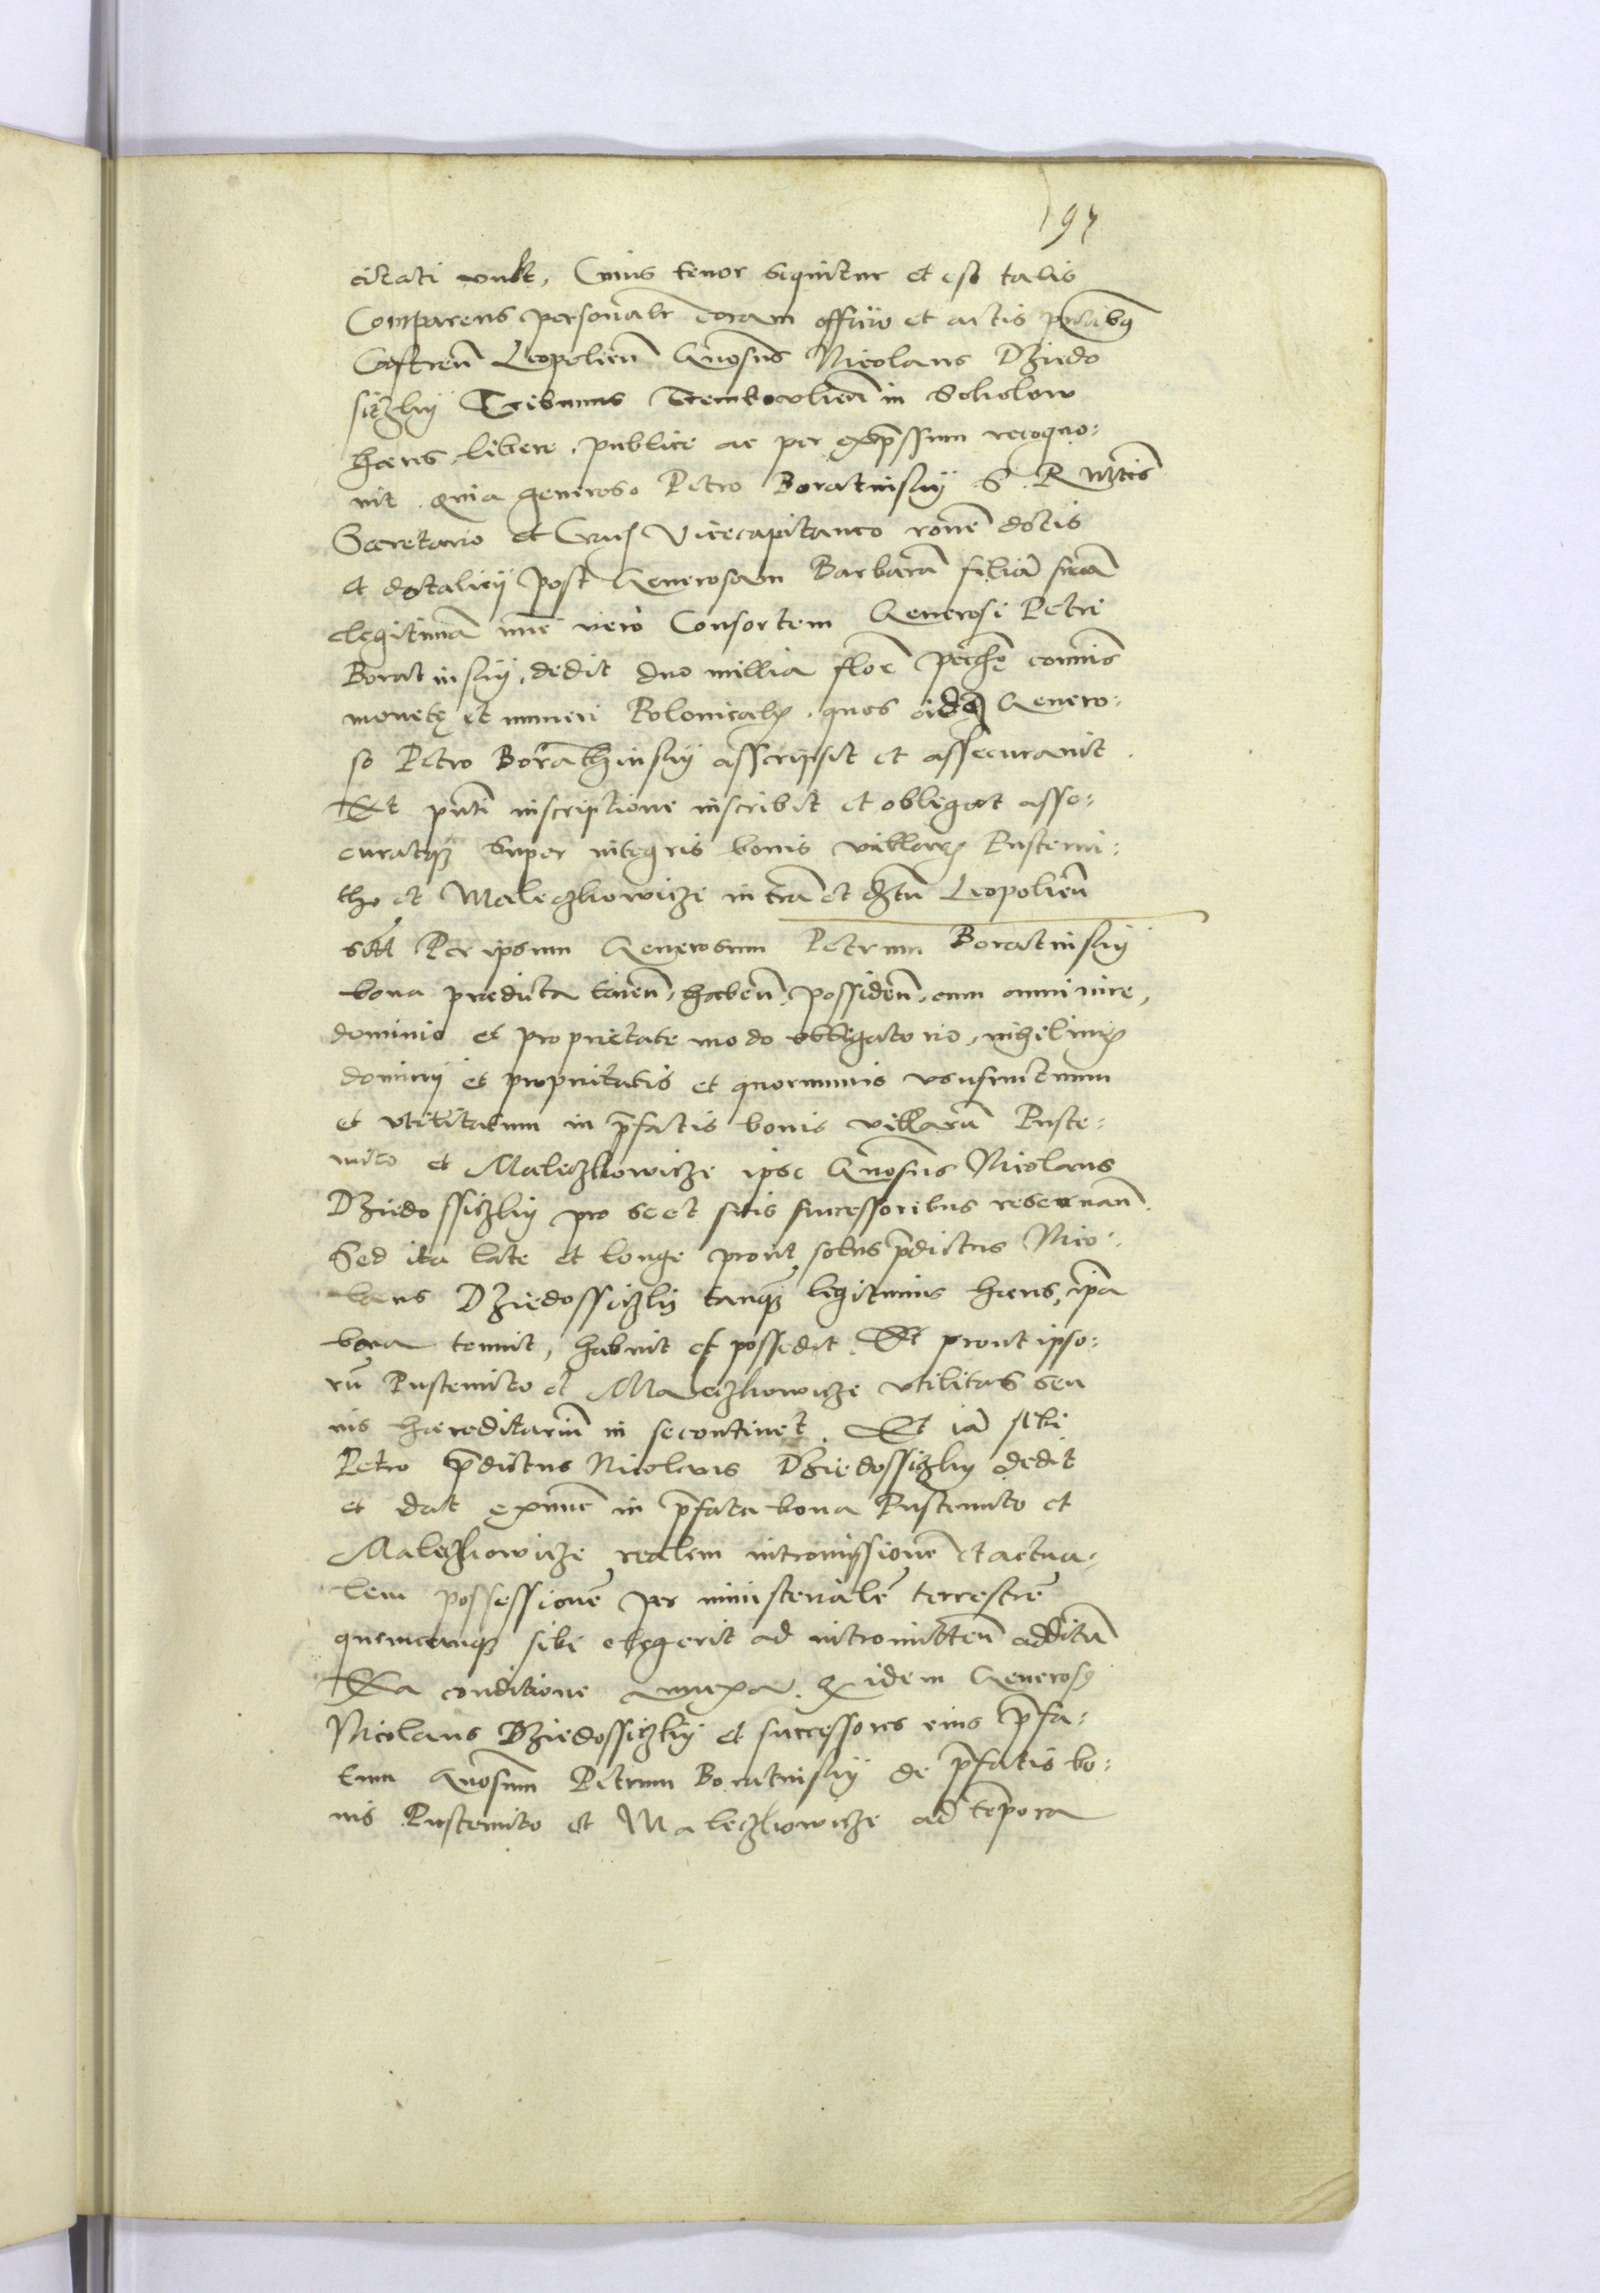 197
citati vult, Cuius tenor sequitur et est talis
Comparens personalr coram officio et actis pntibq
Castren̄ Leopolien̄ Gnosus Nicolaus Dziedo
siczkij Tribunus Trembowlien̄ in Sokolow
haeres, libere, publice ac per expssum recogno:
uit. quia generoso Petro Boratinskij S. R Mtis
Secretario et Vicecapitaneo ronē dotis
et dotalicij post Generosam Barbarā filiā suā
legitimā nūc vero Consortem Generosi Petri
Boratinskij, dedit duo millia flor̄ pecūię cōmunis
monetę et numeri Polonicalis, quos eidem Genero:
so Petro Borathinskij asscripsit et assecurauit
Et pnti inscriptione inscribit et obligat asse:
curatqȝ super integris bonis villarȝ Pustomi:
tho et Maleczkowicze in trā et dstū Leopolien̄
sitt Per ipsum Generosum Petrum Boratinskij
bona predicta tenen̄, haben̄, possiden̄, cum omni iure,
dominio et proprietate modo obligatorio, nihil iuris
dominij et proprietatis et quorumuis vsufructuum
et vtilitatum in pfatis bonis villarū Pusto:
mito et Maleczkowicze ipse Gnosus Nicolaus
Dziedossiczkij pro se et suis successoribus reseruan̄.
Sed ita late et longe prout solus pdictus Nico:
laus Dziedossiczkij tanqȝ legitimus haeres, ipā
bona tenuit, habuit et possedit. Et prout ipso:
rū Pustomito et Maleczkowicze vtilitas seu
ius haereditariū in se continet. Et iā sibi
Petro pdictus Nicolaus Dziedossiczkij dedit
et dat ex nūc in pfata bona Pustomito et
Maleczkowicze realem intromissionē et actua:
lem possessionē per ministerialē terrestrē
quemcunqȝ sibi elegerit ad intromitten̄ additū
Ea conditione annexa. Qz idem Generosq
Nicolaus Dziedossiczkij et successores eius pfa:
tum Gnosum Petrum Boratinskij de pfatis bo:
nis Pustomito et Maleczkowicze ad tempora